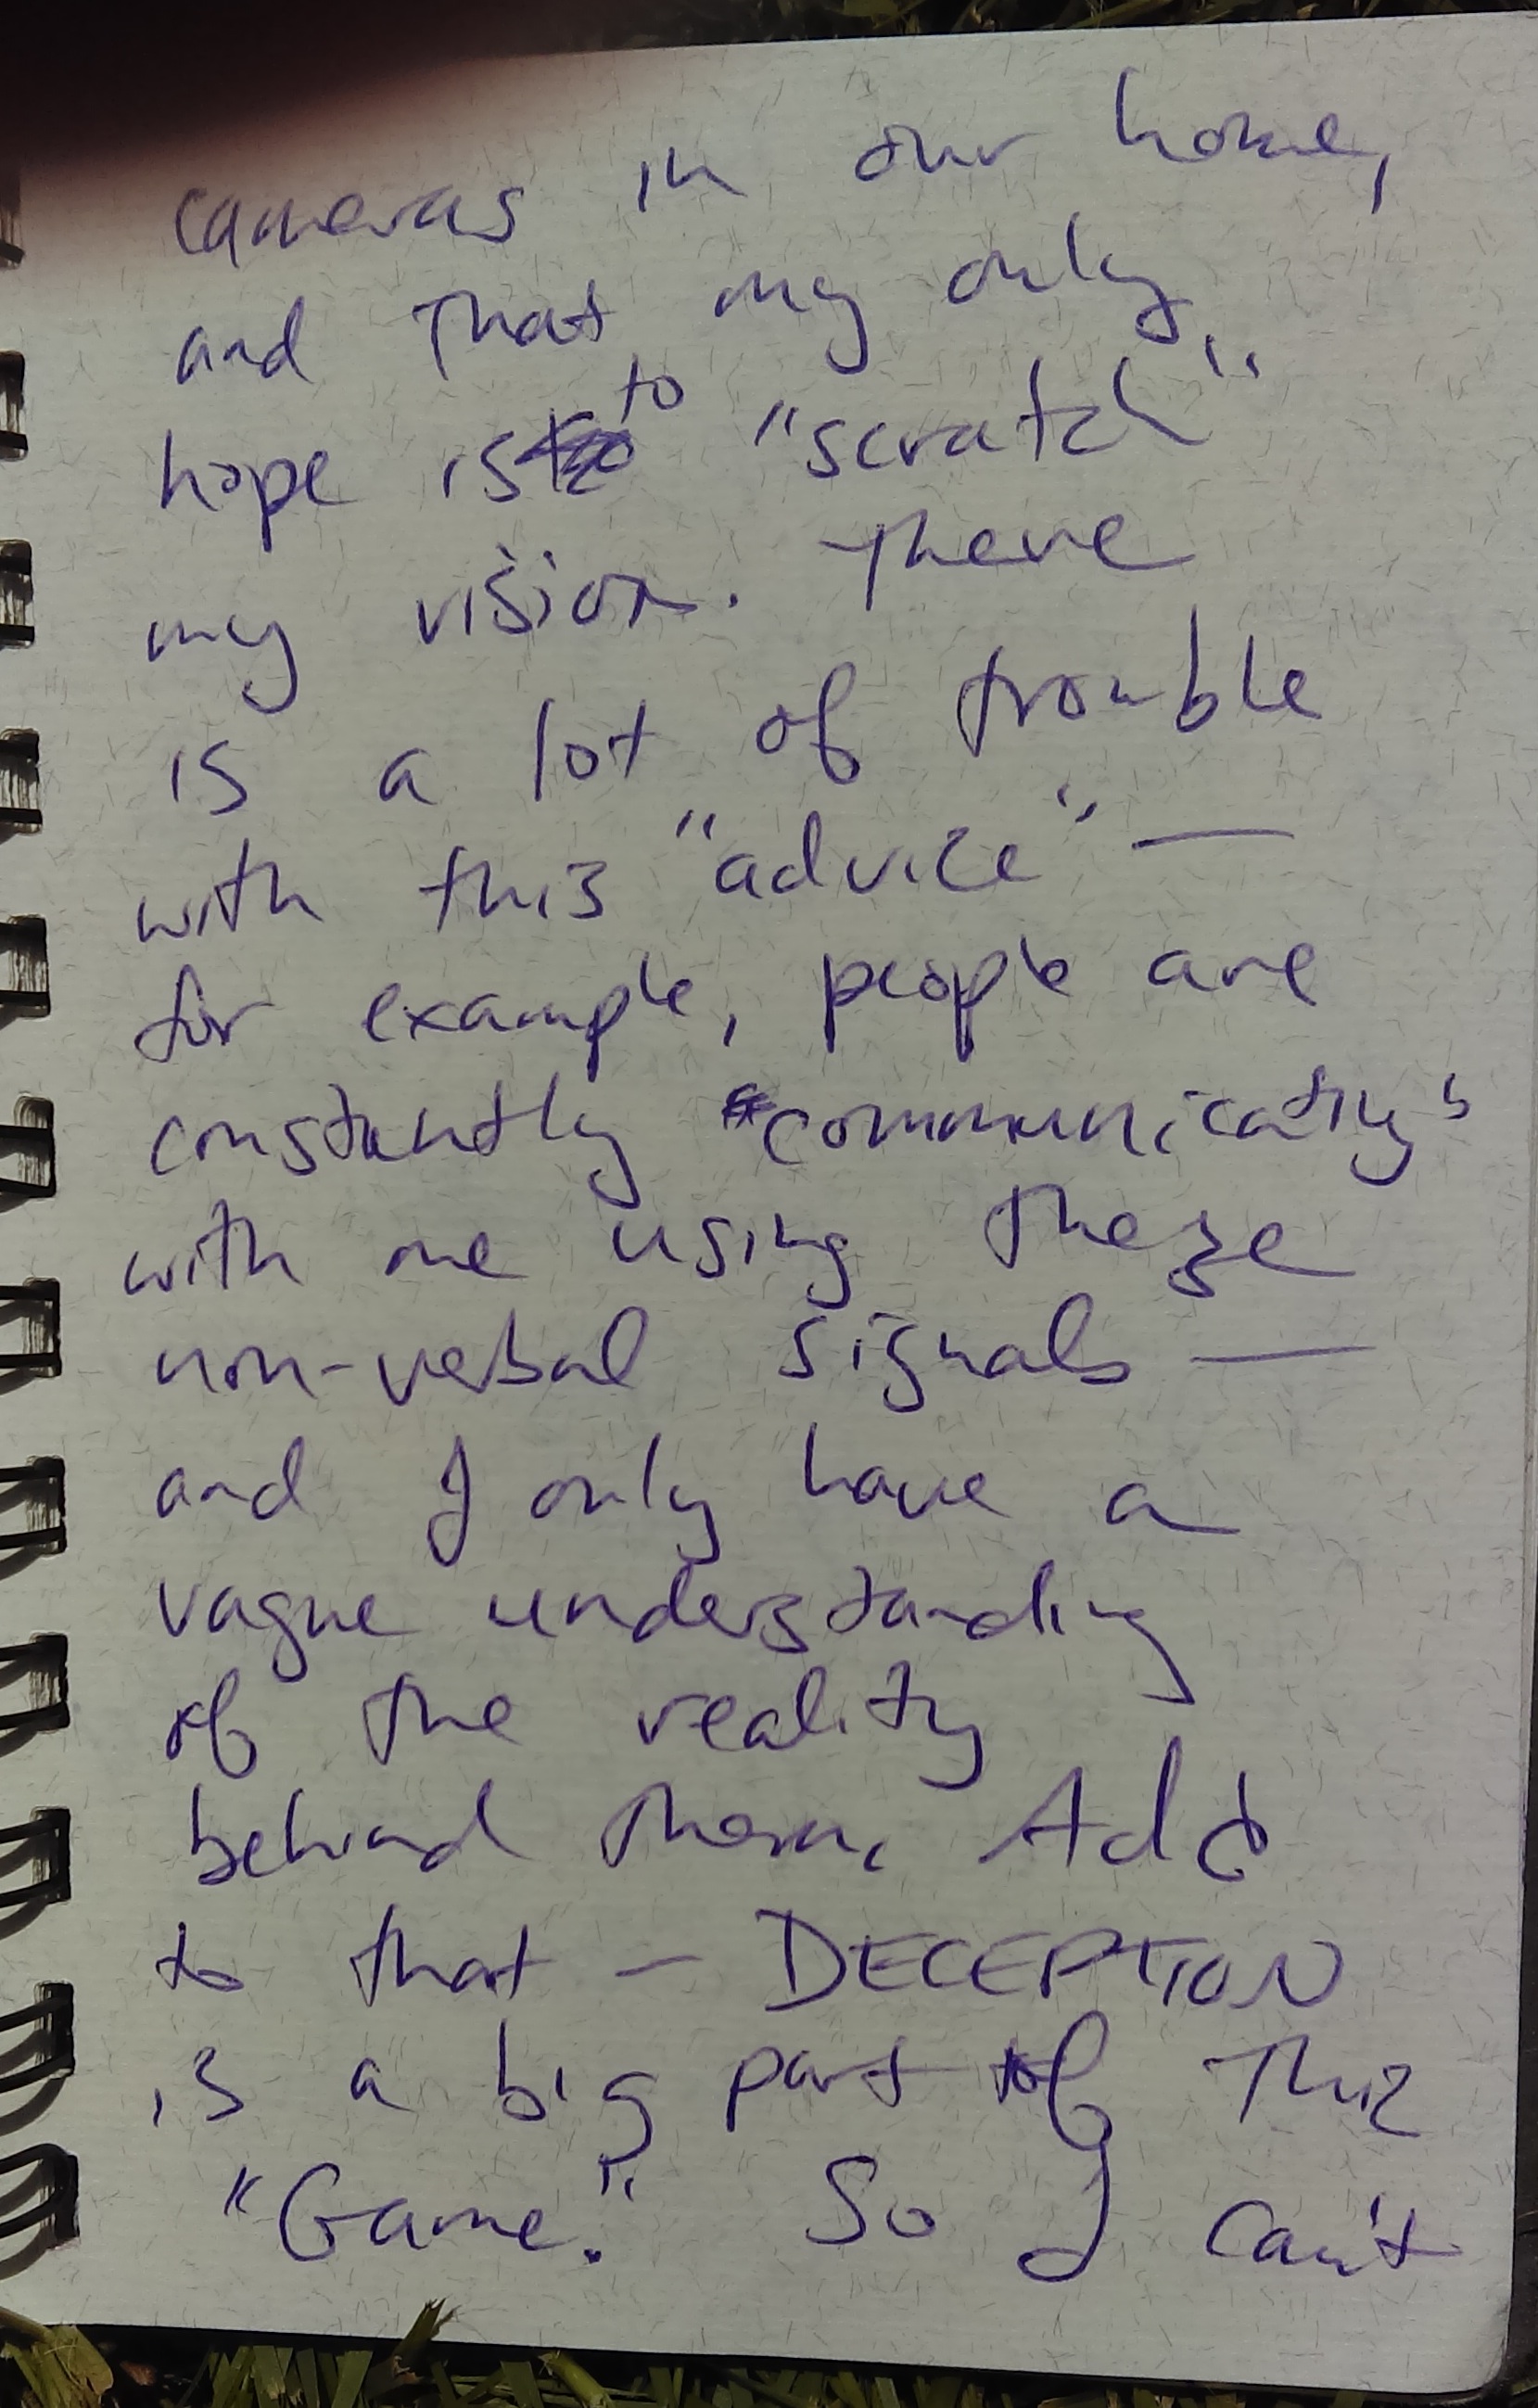 cameras in our home,
and that my only
hope is to "scratch"
my vision. There
is a lot of trouble
with this "advice" —
for example, people are
constantly "communicating"
with me using these
non-verbal signals —
and I only have a
vague understanding
of the reality
behind them. Add
to that — DECEPTION
is a big part of this
"Game." So I can't